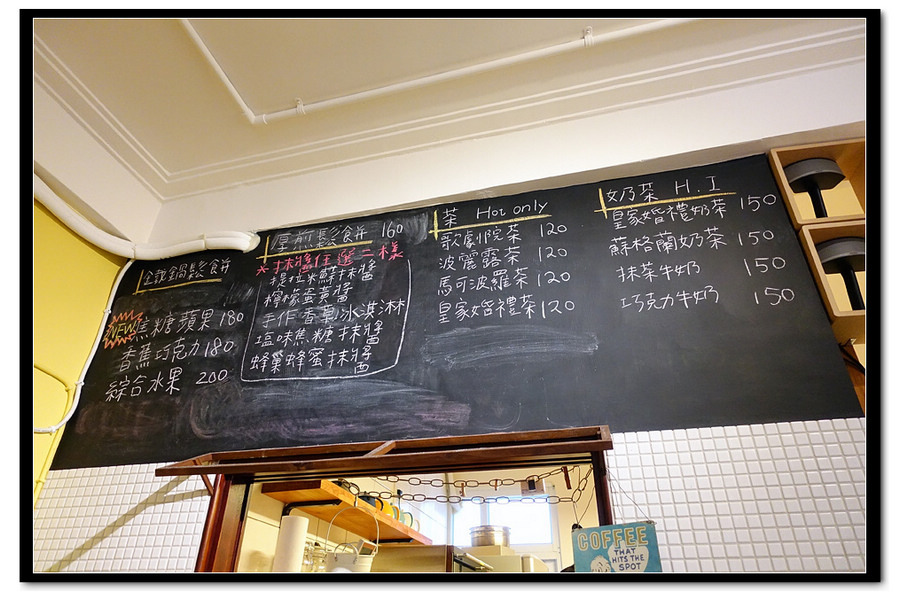 鑄鐵鍋鬆食并
NEW 焦糖蘋果 180
香蕉巧克力 180
綜合水果 200
厚煎鬆食并 160
*抹醬任選二樣
提拉米蘇抹醬
檸檬蛋黃醬
手作香草冰淇淋
塩味焦糖抹醬
蜂巢蜂蜜抹醬
茶 Hot only
歌劇院茶 120
波麗露茶 120
馬可波羅茶 120
皇家婚禮茶 120
奶茶 H.I
皇家婚禮奶茶 150
蘇格蘭奶茶 150
抹茶牛奶 150
巧克力牛奶 150
COFFEE
THAT
HITS THE
SPOT